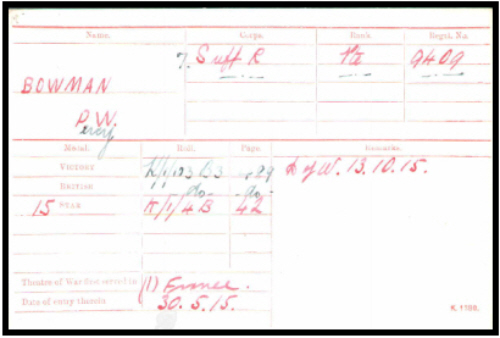 Name. Corps. Rank. Regtl. No.
7. Suff R Pte 9409
BOWMAN
P.W.
Percy
Medal. Roll. Page. Remarks.
VICTORY K/1/103 B3 D of W. 13.10.15.
BRITISH -do- -do-
15 STAR K/1/4 B 42
Theatre of War first served in (1) France.
Date of entry therein 30.5.15.
K. 1380.